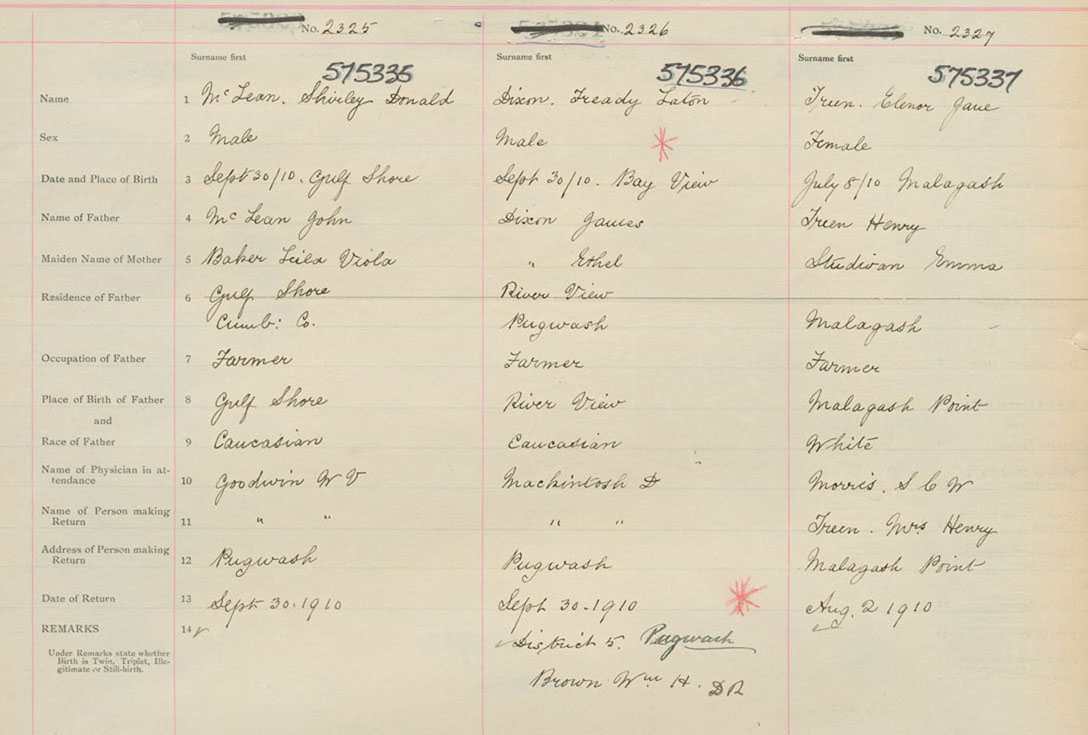 No. 2325 No. 2326 No. 2327
Surname first Surname first Surname first
575335 575336 575337
Name 1 McLean. Shirley Donald Dixon. Fready Laton Treen. Elenor Jane
Sex 2 Male Male Female
Date and Place of Birth 3 Sept 30/10. Gulf Shore Sept 30/10. Bay View July 8/10 Malagash
Name of Father 4 McLean John Dixon James Treen Henry
Maiden Name of Mother 5 Baker Leila Viola " Ethel Studivan Emma
Residence of Father 6 Gulf Shore River View
Cumb: Co. Pugwash Malagash
Occupation of Father 7 Farmer Farmer Farmer
Place of Birth of Father 8 Gulf Shore River View Malagash Point
and
Race of Father 9 Caucasian Caucasian White
Name of Physician in at-
tendance 10 Goodwin W V Mackintosh D Morris. S C W
Name of Person making
Return 11 " " " " Treen. Mrs Henry
Address of Person making
Return 12 Pugwash Pugwash Malagash Point
Date of Return 13 Sept 30.1910 Sept 30.1910 Aug. 2 1910
REMARKS 14 District 5. Pugwash
Under Remarks state whether
Birth is Twin, Triplet, Ille-
gitimate or Still-birth.
Brown Wm H. DR